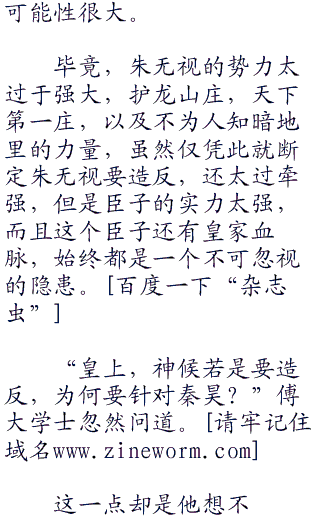 可能性很大。
毕竟，朱无视的势力太
过于强大，护龙山庄，天下
第一庄，以及不为人知暗地
里的力量，虽然仅凭此就断
定朱无视要造反，还太过牵
强，但是臣子的实力太强，
而且这个臣子还有皇家血
脉，始终都是一个不可忽视
的隐患。[百度一下“杂志
虫”]
“皇上，神候若是要造
反，为何要针对秦昊？”傅
大学士忽然问道。[请牢记住
域名www.zineworm.com]
这一点却是他想不